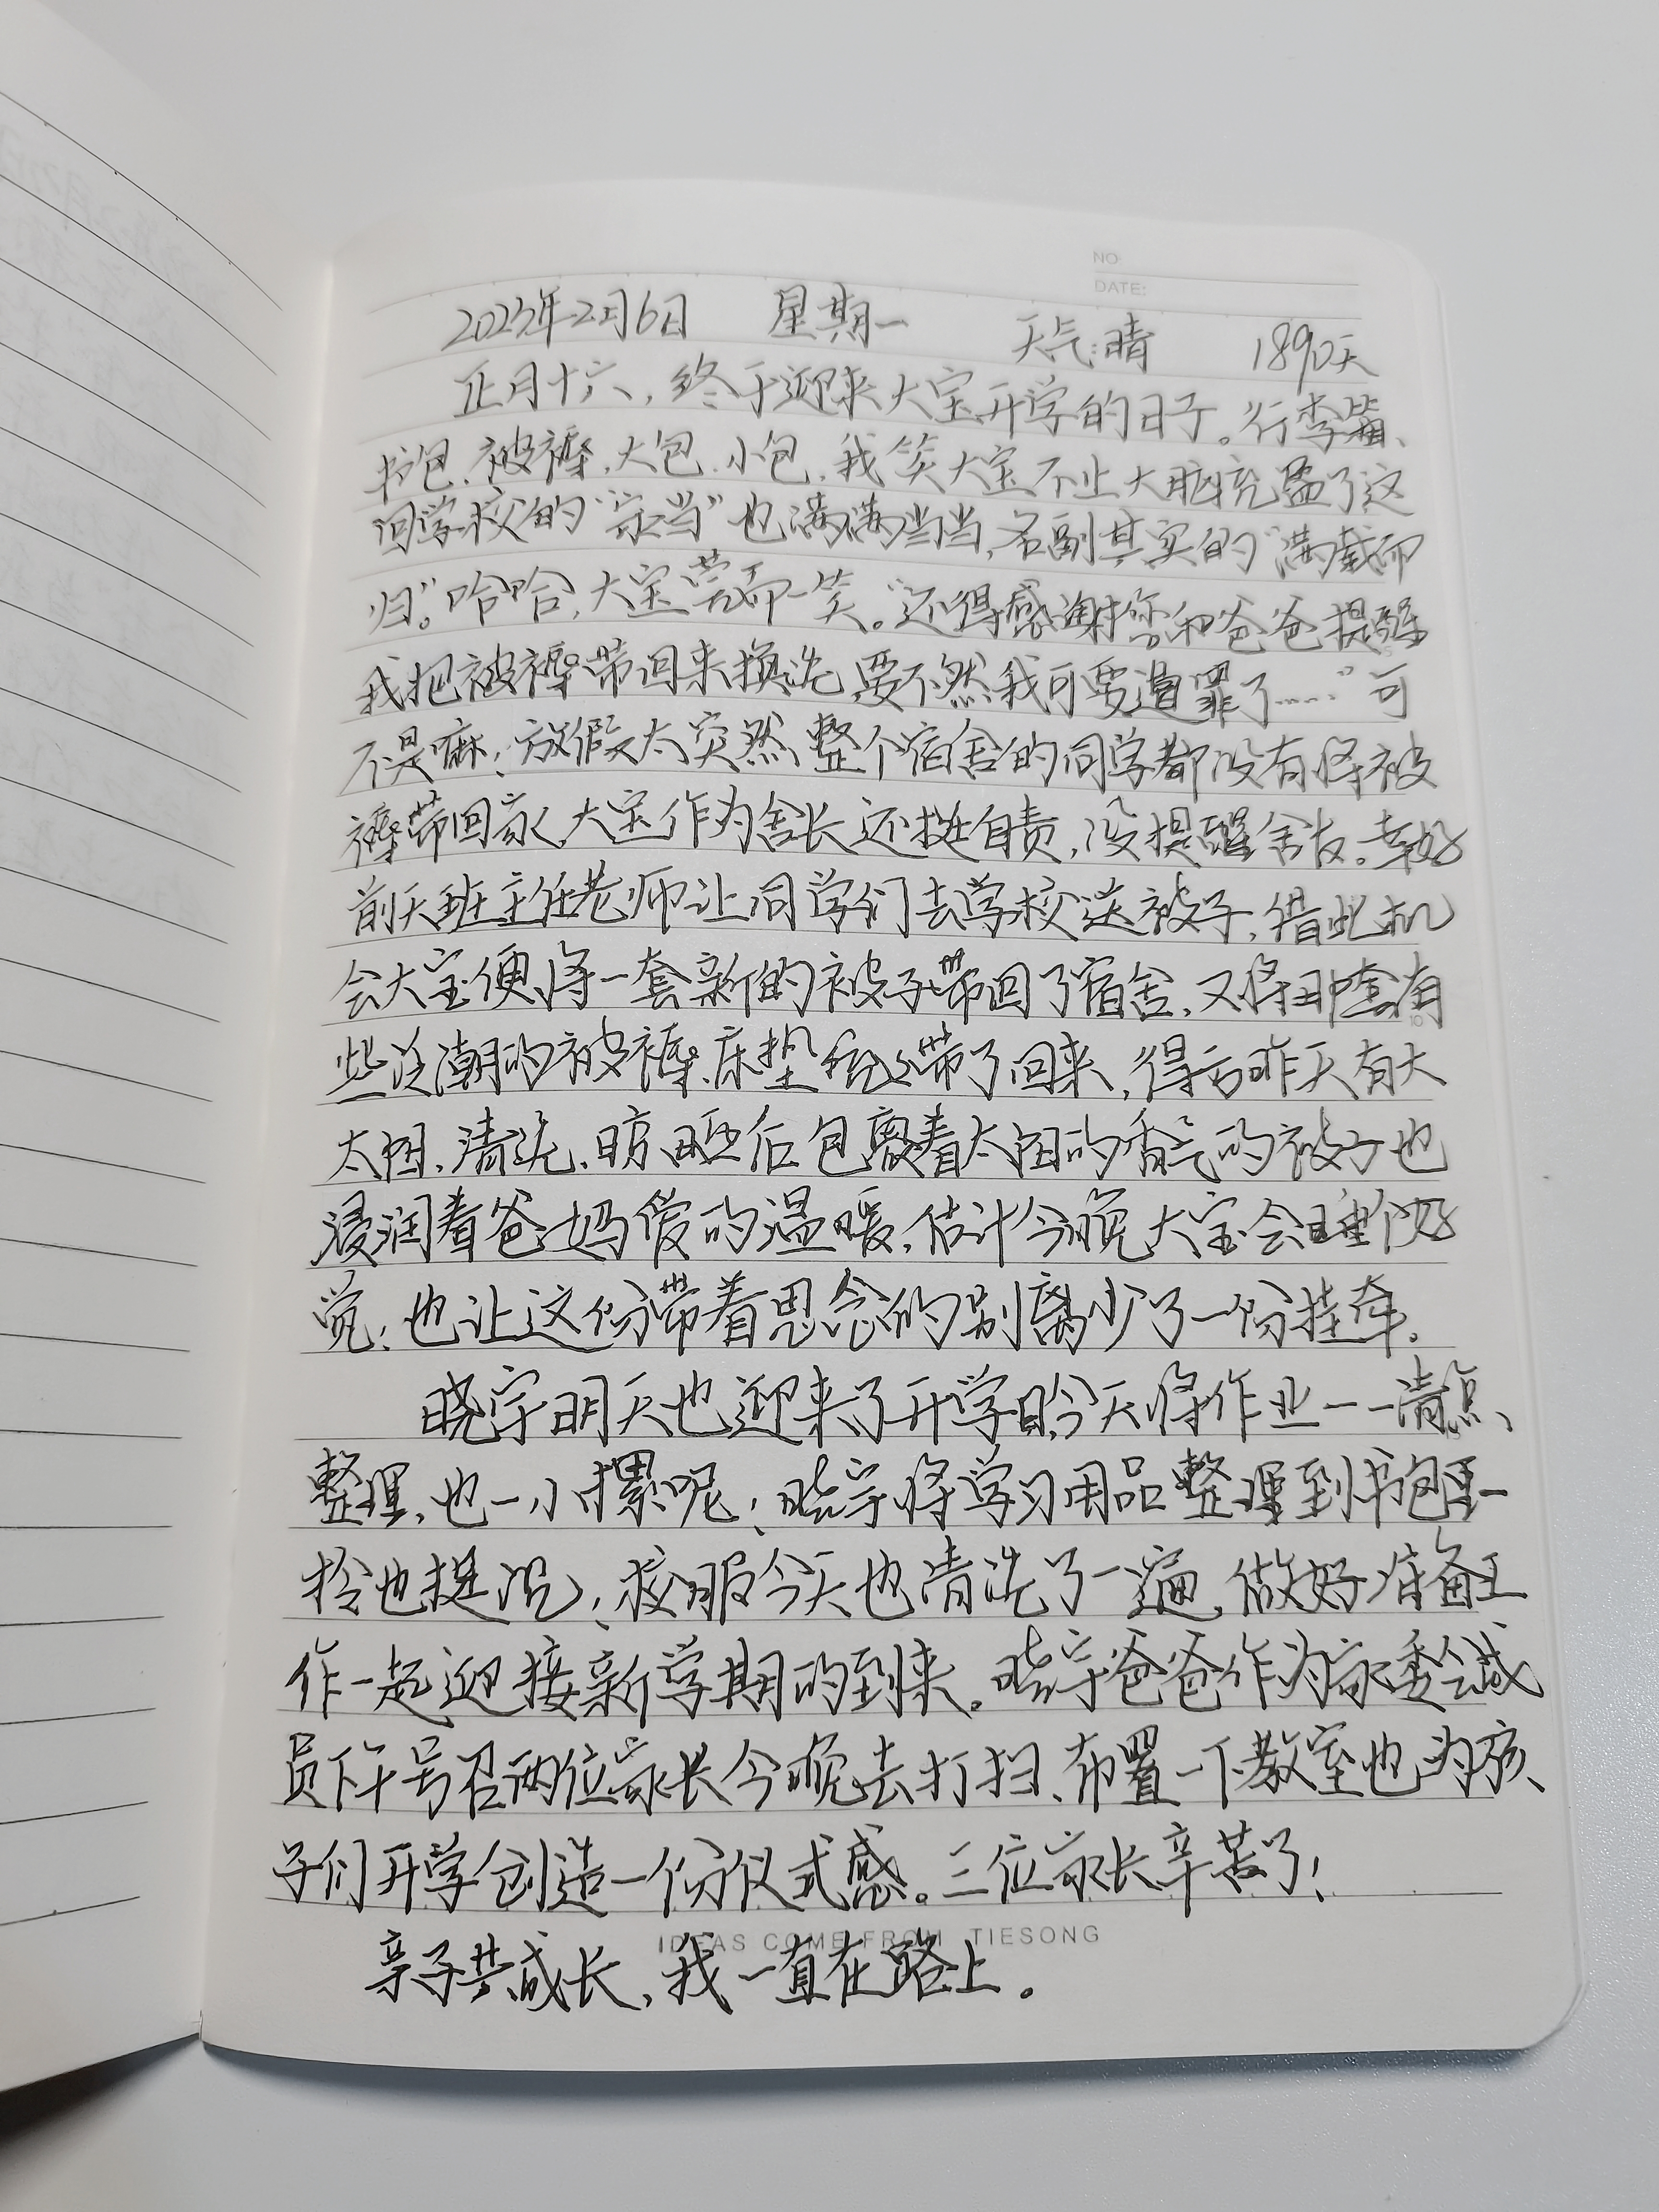 NO:
DATE:
2023年2月6日 星期一 天气:晴 1890天
正月十六,终于迎来大宝开学的日子。行李箱、
书包、被褥,大包、小包,我笑大宝不止大脑充盈了这
回学校的“家当”也满满当当,名副其实的“满载而
归。”哈哈,大宝莞而一笑。“还得感谢您和爸爸提醒
我把被褥带回来换洗,要不然我可要遭罪了……”可
不是嘛!放假太突然,整个宿舍的同学都没有将被
褥带回家,大宝作为舍长还挺自责,没提醒舍友。幸好
前天班主任老师让同学们去学校送被子,借此机
会大宝便将一套新的被子带回了宿舍,又将那套有
些泛潮的被褥、床垫 带了回来,得亏昨天有大
太阳,清洗、晾晒后包裹着太阳的香气的被子也
浸润着爸妈爱的温暖,估计今晚大宝会睡个好
觉!也让这份带着思念的别离少了一份挂牵。
晓宇明天也迎来了开学日,今天将作业一一清点、
整理,也一小摞呢!晓宇将学习用品整理到书包里一
拎也挺沉!校服今天也清洗了一遍,做好准备工
作一起迎接新学期的到来。晓宇爸爸作为家委会成
员下午号召两位家长今晚去打扫、布置一下教室也为孩
子们开学创造一份仪式感。三位家长辛苦了!
IDEAS COME FROM TIESONG
亲子共成长,我一直在路上。